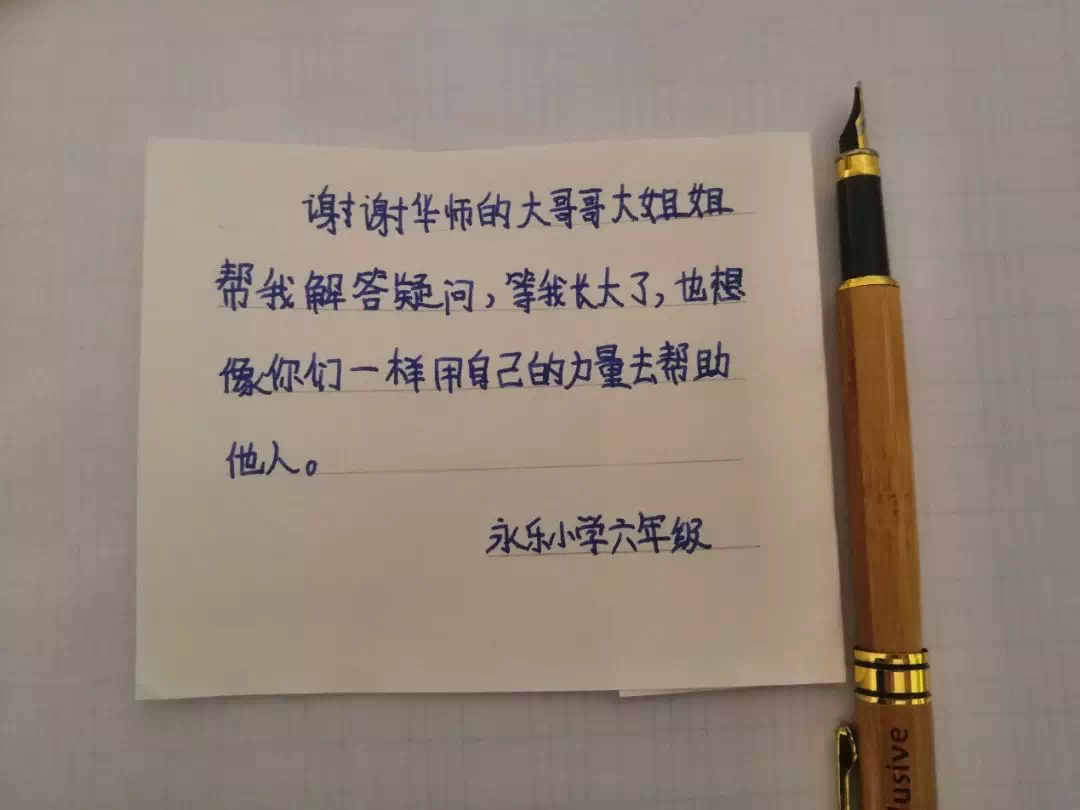 谢谢华师的大哥哥大姐姐
帮我解答疑问,等我长大了,也想
像你们一样用自己的力量去帮助
他人。
永乐小学六年级
lusive